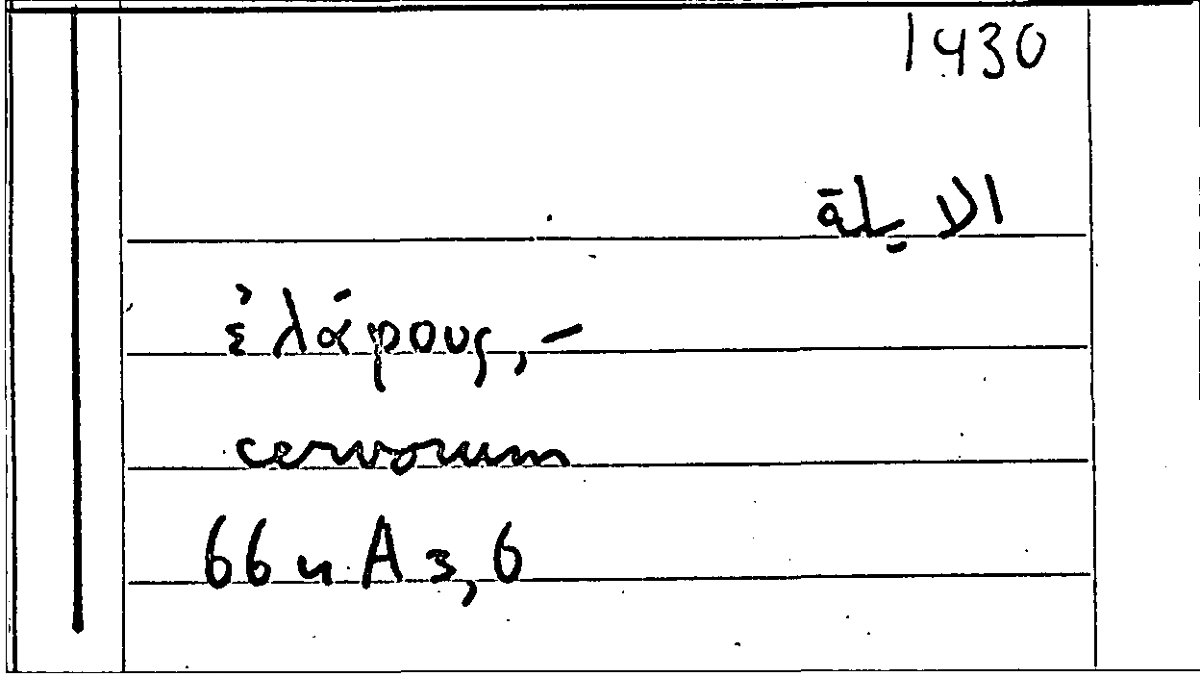 1430
الايلة
ἐλάφους,-
cervorum
664 A 3,6